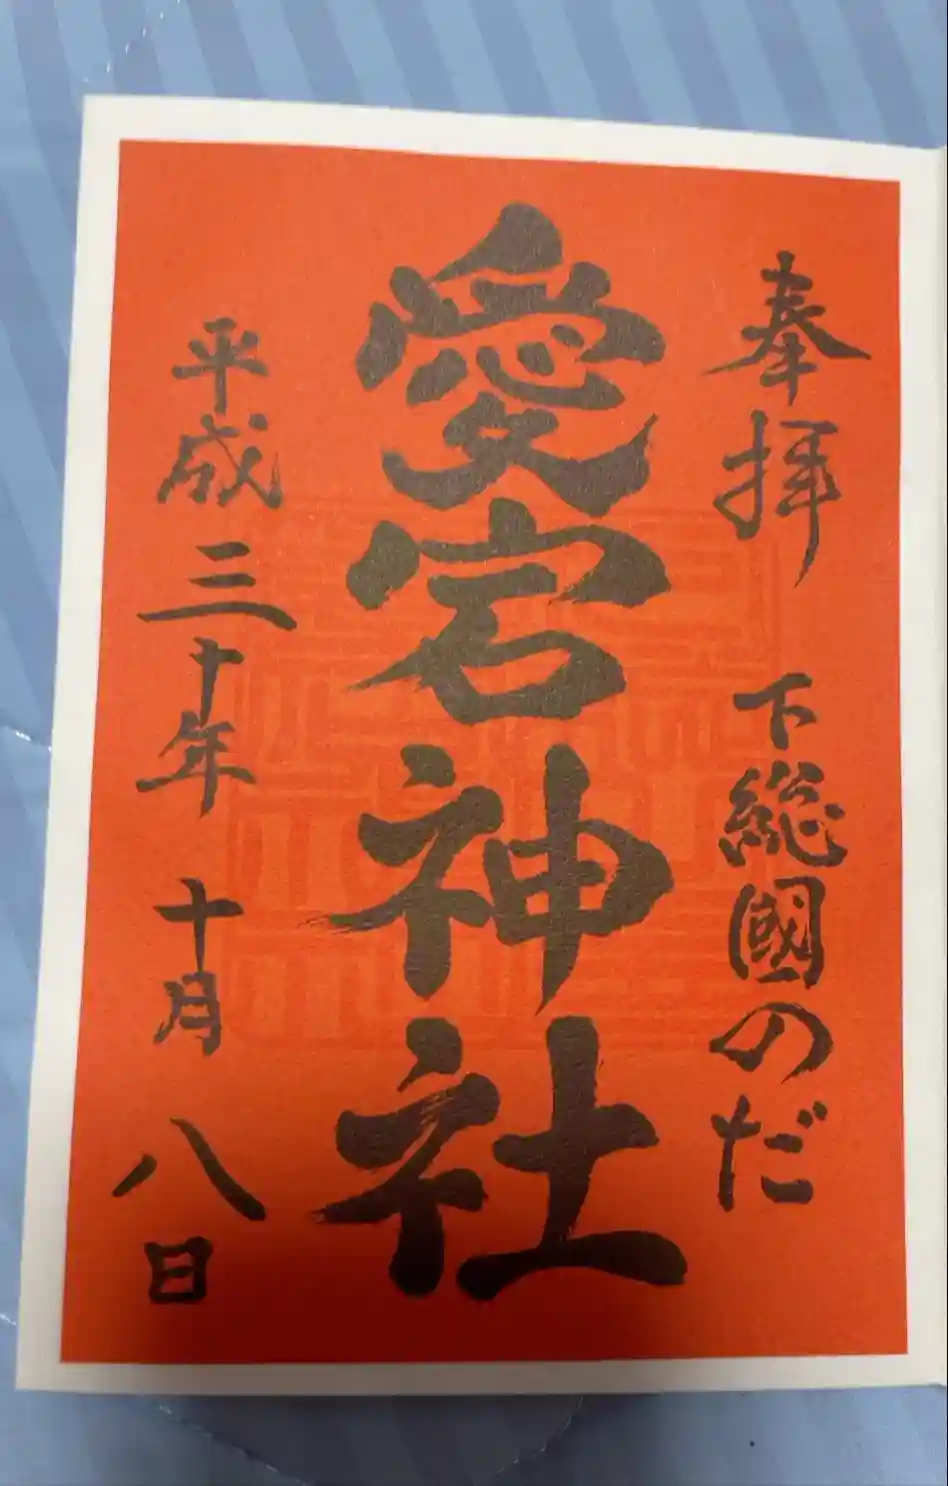 奉拝 下総國のだ
愛宕神社
平成三十年 十月 八日